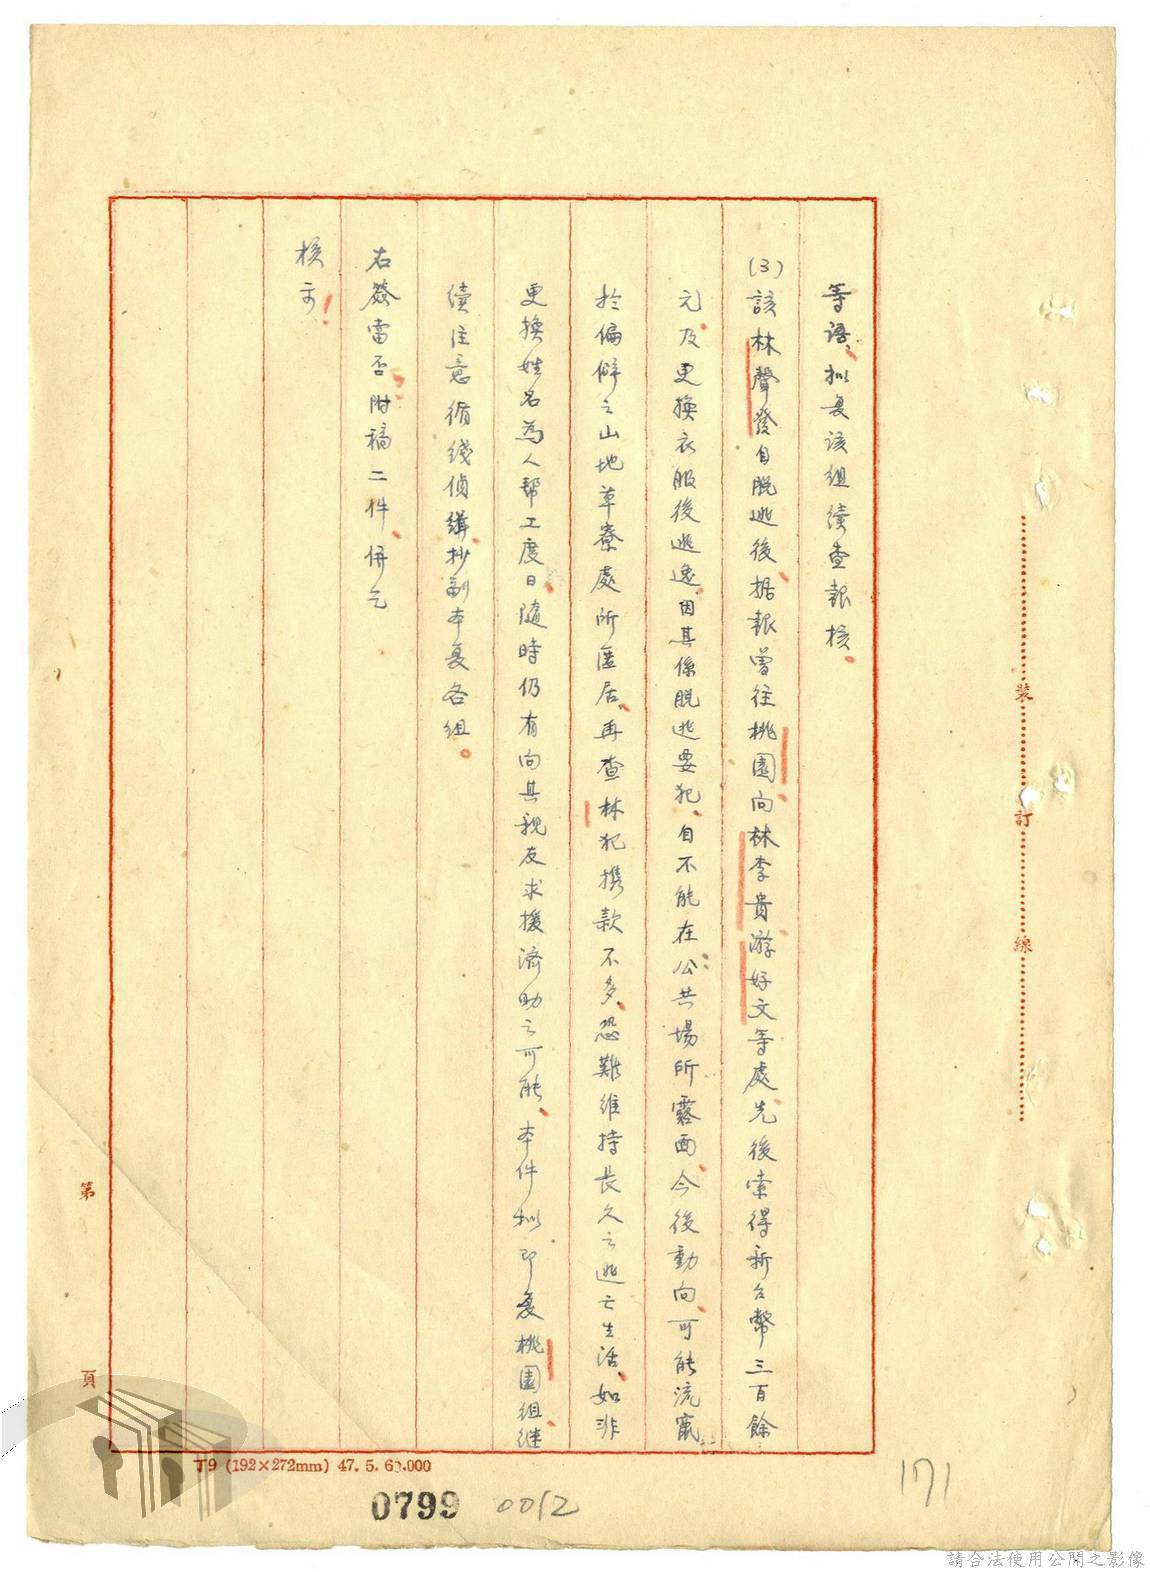 等語、拟复该组續查報核。
(3)該林聲發自脫逃後、据報曾往桃園向林李貴、游好文等處、先後索得新台幣三百餘
元、及更換衣服後逃逸、因其係脫逃要犯、自不能在公共場所露面、今後動向、可能流竄
於偏僻之山地草寮處所匿居、再查林犯携款不多、恐難維持長久之逃亡生活、如非
更換姓名為人帮工度日、隨時仍有向其親友求援済助之可能、本件拟即复桃園組、継
續注意循綫偵緝、抄副本复各組。
右簽當否、附稿二件、併乞
核示!
裝
訂
線
第
頁
T9 (192×272mm) 47. 5. 60.000
0799 0012
171
請合法使用公開之影像